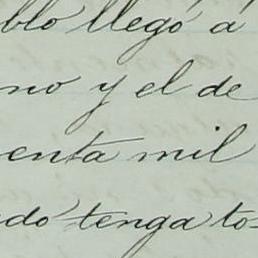 blo llegó á
no y el de
enta mil
do tenga to-